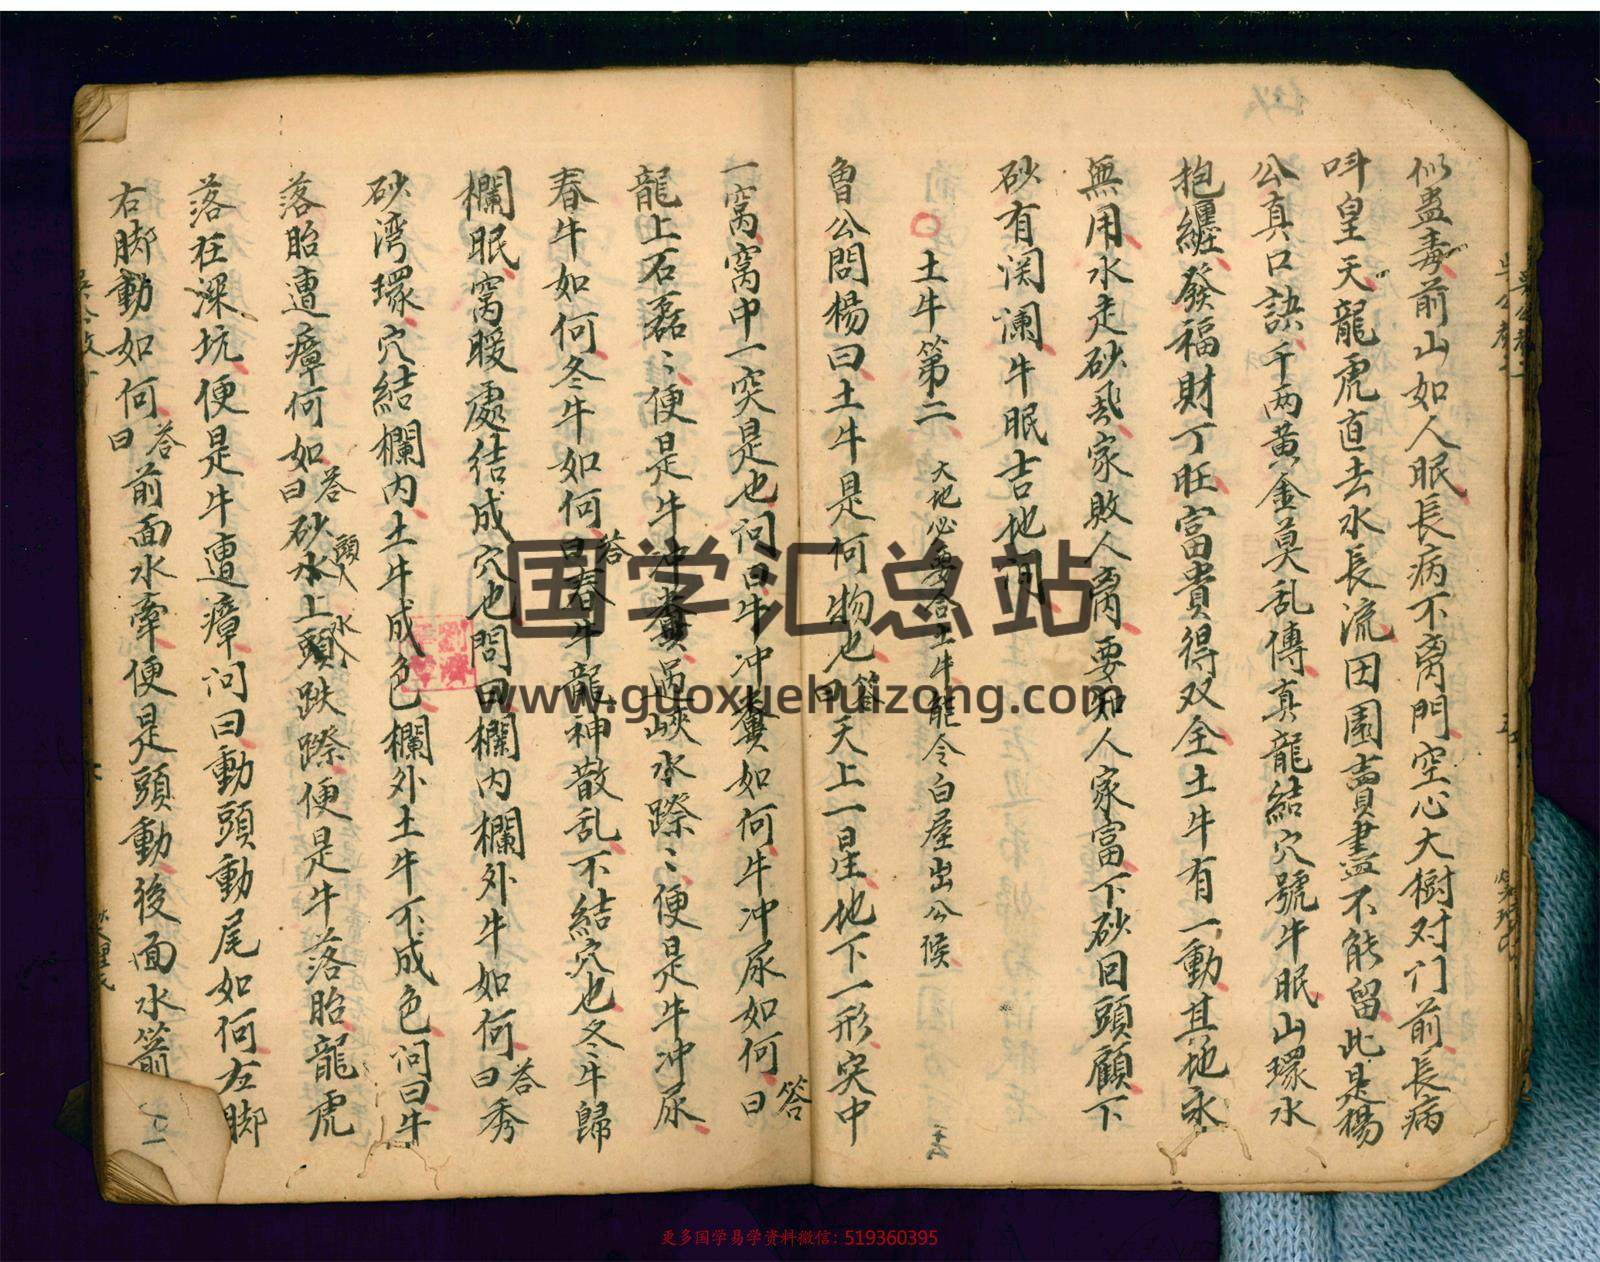 似蛊毒前山如人眠長病不离門空心大樹对门前長病
呌皇天龍虎直去水長流田園賣盡不能留此是楊
公真口訣千两黄金莫乱傳真龍結穴號牛眠山環水
抱纏發福財丁旺富貴得双全土牛有一動其地永
無用水走砂飛家敗人离要知人家富下砂回頭顧下
砂有関澜牛眠吉地问
土牛第二 大地必要合土牛能令白屋出公候
魯公問楊曰土牛是何物也答曰天上一星地下一形突中
一窩窩中一突是也问曰牛冲糞如何牛冲尿如何答曰
龍上石磊〻便是牛冲糞過峽水際〻便是牛冲尿
春牛如何冬牛如何答曰春牛龍神散乱不結穴也冬牛歸
欄眠窩暖處結成穴也問曰欄内欄外牛如何答曰秀
砂湾環穴結欄内土牛成色欄外土牛不成色问曰牛
落胎遭瘴何如答曰砂水上頭跌際便是牛落胎龍虎
頭入水入
落在深坑便是牛遭瘴问曰動頭動尾如何左脚
右脚動如何答曰前面水牽便是頭動後面水箭
国学汇总站
www.guoxuehuizong.com
更多国学易学资料微信：519360395